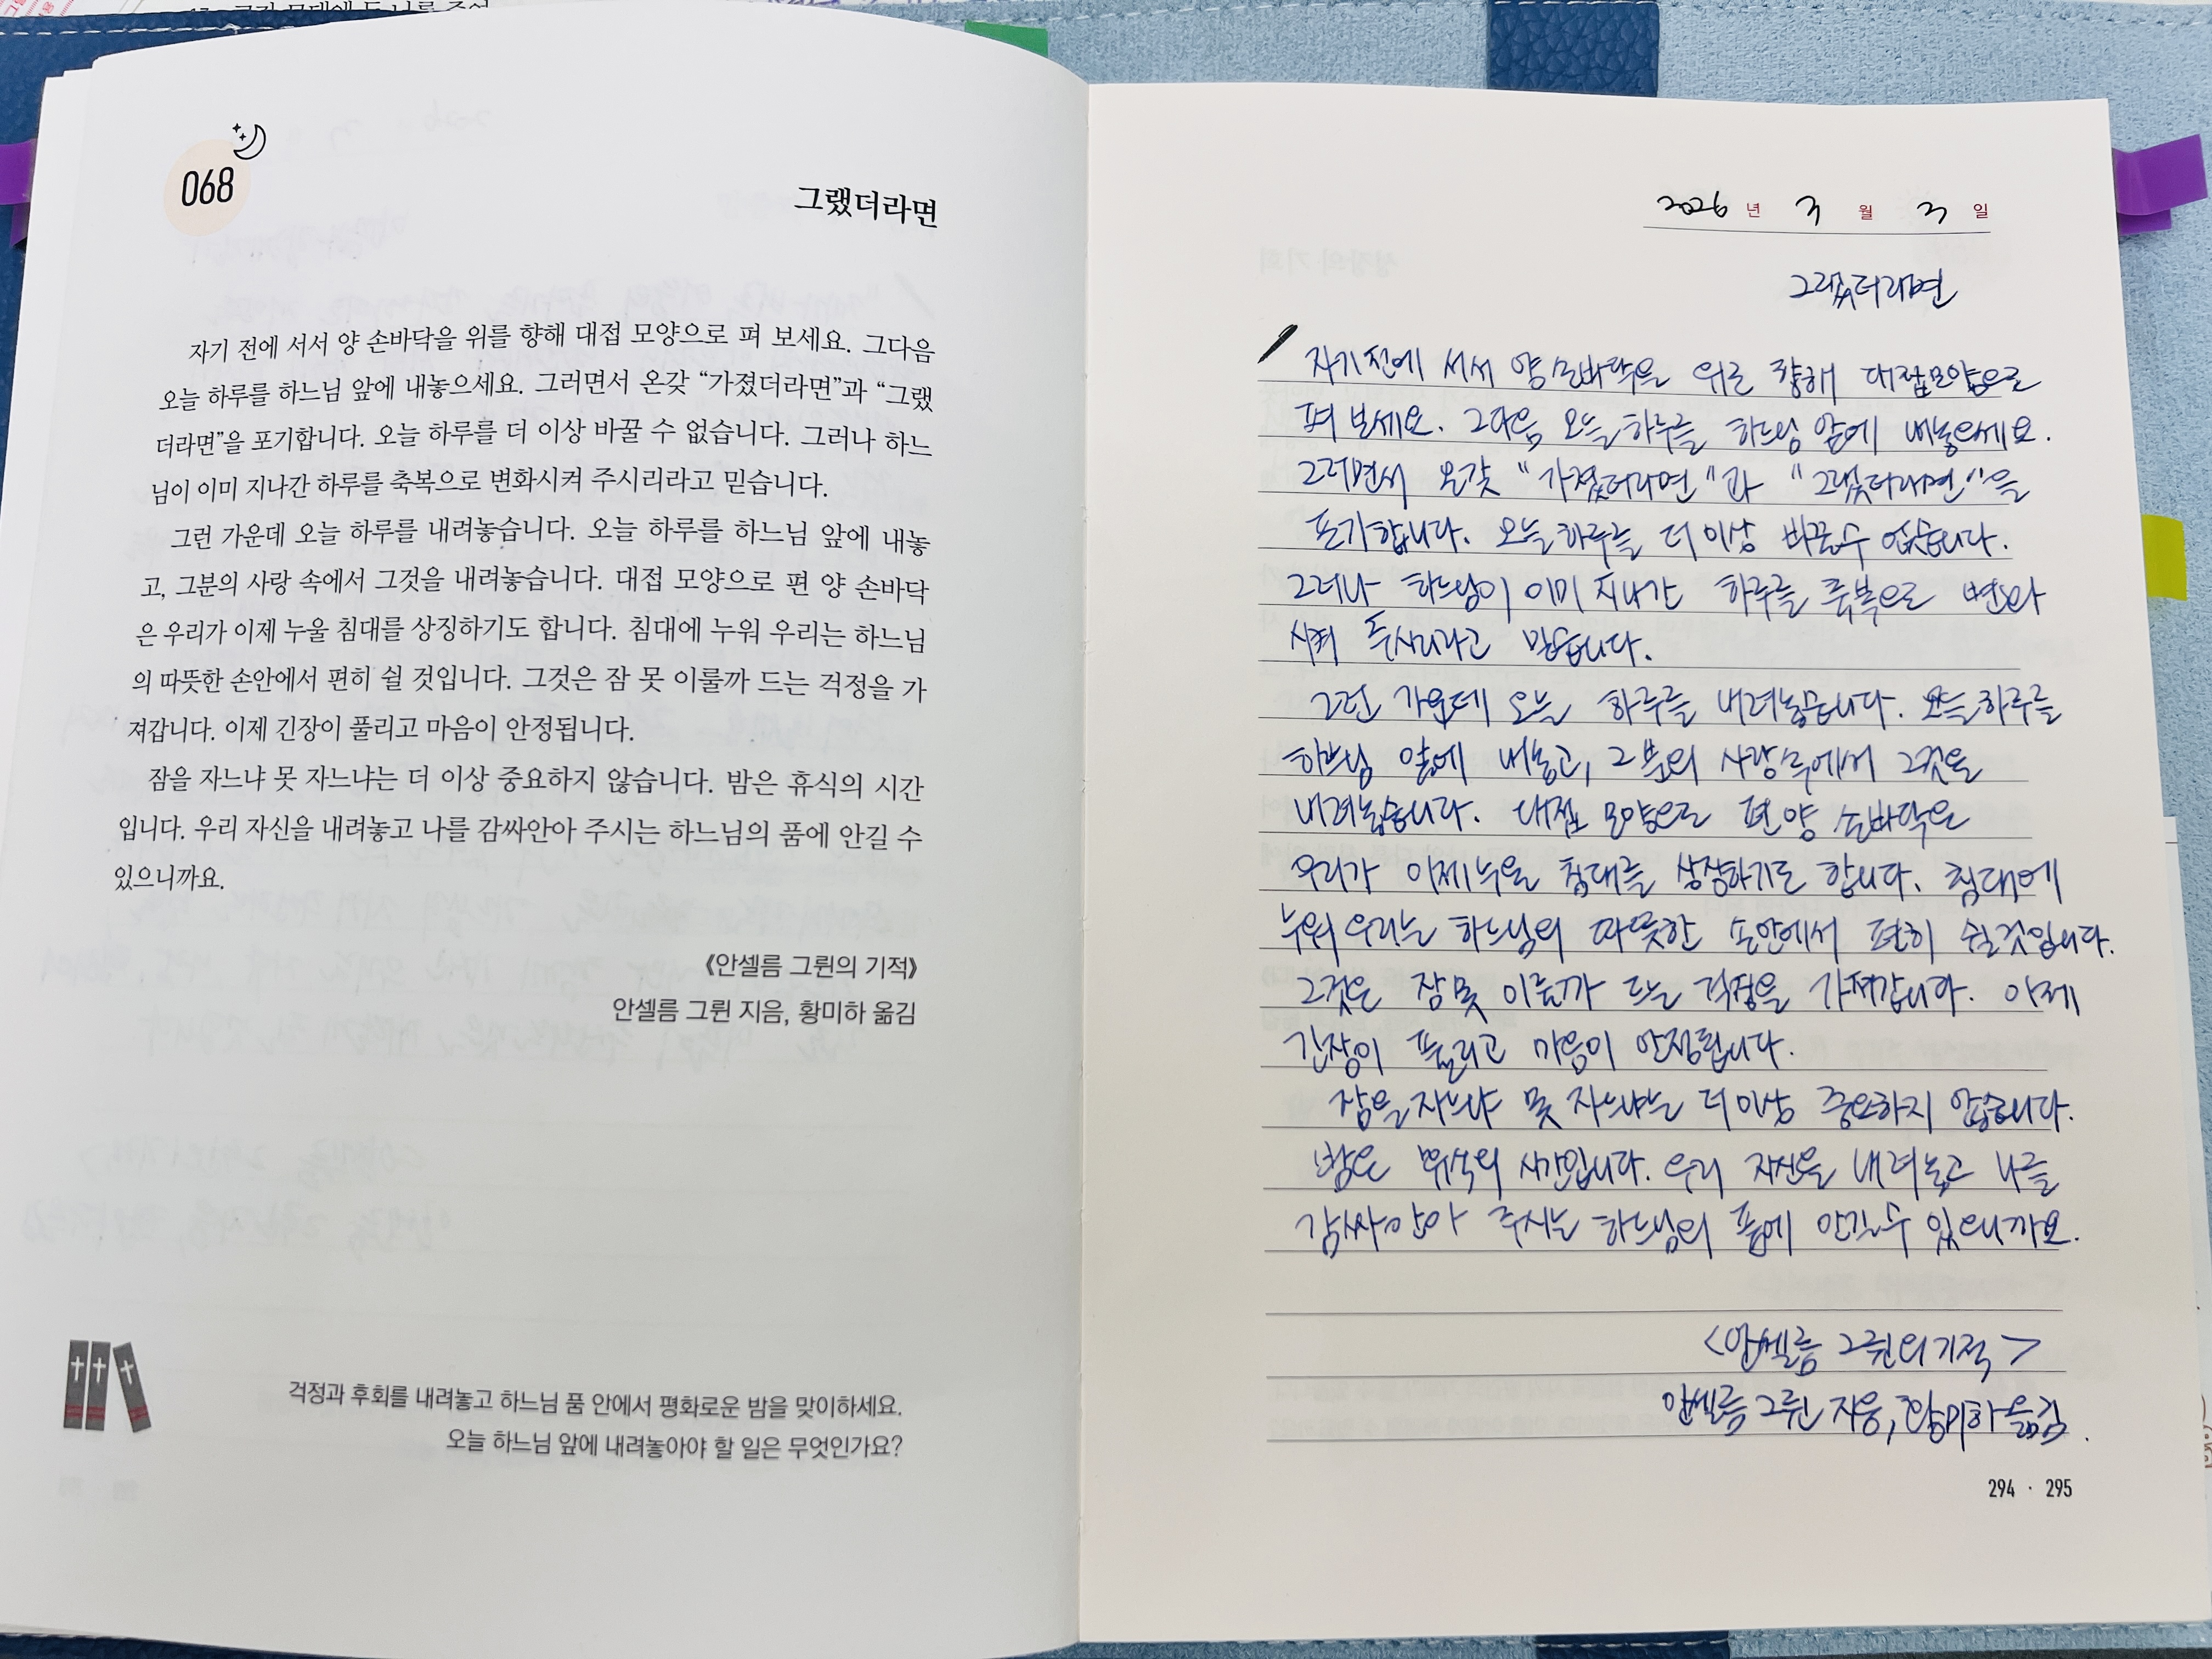 068
그랬더라면
자기 전에 서서 양 손바닥을 위를 향해 대접 모양으로 펴 보세요. 그다음
오늘 하루를 하느님 앞에 내놓으세요. 그러면서 온갖 “가졌더라면”과 “그랬
더라면”을 포기합니다. 오늘 하루를 더 이상 바꿀 수 없습니다. 그러나 하느
님이 이미 지나간 하루를 축복으로 변화시켜 주시리라고 믿습니다.
그런 가운데 오늘 하루를 내려놓습니다. 오늘 하루를 하느님 앞에 내놓
고, 그분의 사랑 속에서 그것을 내려놓습니다. 대접 모양으로 편 양 손바닥
은 우리가 이제 누울 침대를 상징하기도 합니다. 침대에 누워 우리는 하느님
의 따뜻한 손안에서 편히 쉴 것입니다. 그것은 잠 못 이룰까 드는 걱정을 가
져갑니다. 이제 긴장이 풀리고 마음이 안정됩니다.
잠을 자느냐 못 자느냐는 더 이상 중요하지 않습니다. 밤은 휴식의 시간
입니다. 우리 자신을 내려놓고 나를 감싸안아 주시는 하느님의 품에 안길 수
있으니까요.
《안셀름 그륀의 기적》
안셀름 그륀 지음, 황미하 옮김
걱정과 후회를 내려놓고 하느님 품 안에서 평화로운 밤을 맞이하세요.
오늘 하느님 앞에 내려놓아야 할 일은 무엇인가요?
2026 년 3 월 3 일
그랬더라면
자기 전에 서서 양 손바닥을 위로 향해 대접모양으로
펴 보세요. 그다음, 오늘 하루를 하느님 앞에 내놓으세요.
그러면서 온갖 "가졌더라면"과 "그랬더라면"을
포기합니다. 오늘 하루를 더 이상 바꿀수 없습니다.
그러나 하느님이 이미 지나간 하루를 축복으로 변화
시켜 주시리라고 믿습니다.
그런 가운데 오늘 하루를 내려놓습니다. 오늘 하루를
하느님 앞에 내놓고, 그분의 사랑속에서 그것을
내려놓습니다. 대접 모양으로 편 양 손바닥은
우리가 이제 누울 침대를 상징하기도 합니다. 침대에
누워 우리는 하느님의 따뜻한 손안에서 편히 쉴것입니다.
그것은 잠 못 이룰까 드는 걱정을 가져갑니다. 이제
긴장이 풀리고 마음이 안정됩니다.
잠을 자느냐 못 자느냐는 더 이상 중요하지 않습니다.
밤은 휴식의 시간입니다. 우리 자신을 내려놓고 나를
감싸안아 주시는 하느님의 품에 안길수 있으니까요.
<안셀름 그륀의 기적>
안셀름 그륀 지음, 황미하 옮김.
294 · 295